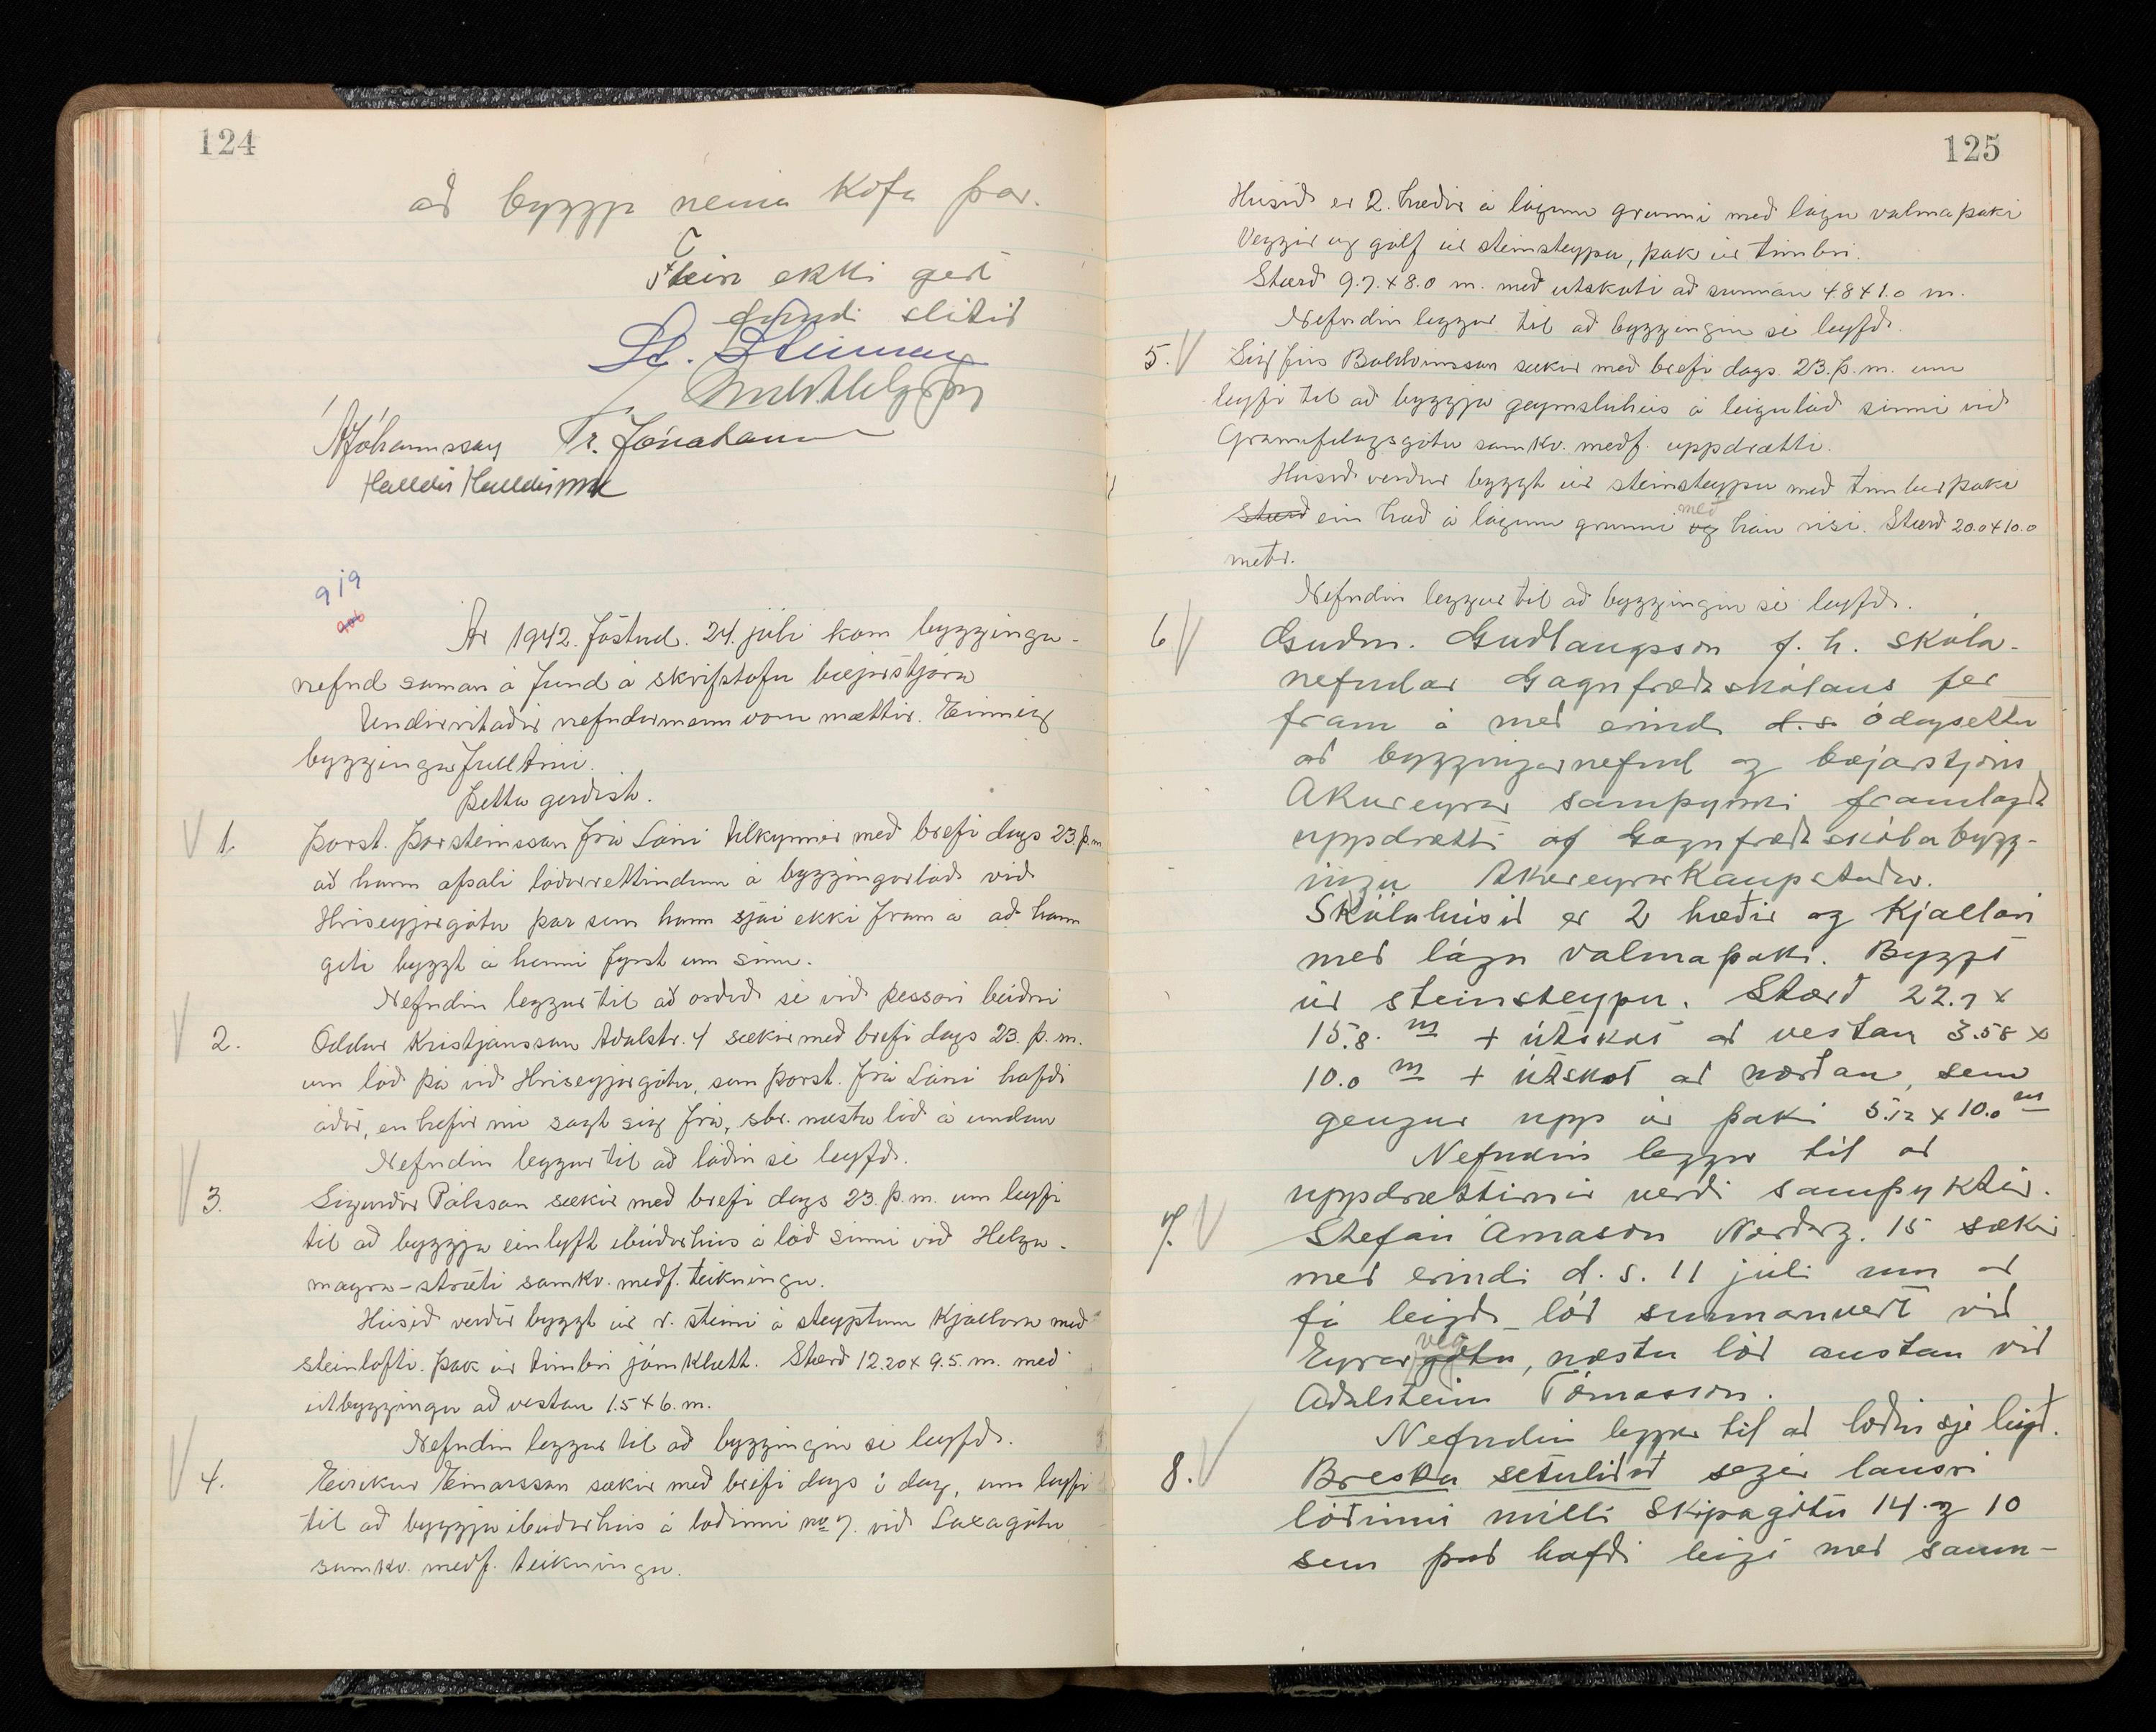 124
að byggja neina kofa þar.
Fleira ekki gert
fundi slitið
St. Steinsen
Tr. Jónatansson
Halldór Halldórsson
919
Ár 1942. föstud. 24. júlí kom bygginga-
nefnd saman á fund á skrifstofu bæjarstjóra
Undirritaðir nefndarmenn voru mættir. Einnig
byggingafulltrúi.
Þetta gerðist.
V 1. Þorst. Þorsteinsson frá Lóni tilkynnir með bréfi dags 23. þ.m.
að hann afsali lóðarréttindum á byggingarlóð við
Hríseyjargötu þar sem hann sjái ekki fram á að hann
geti byggt á henni fyrst um sinn.
Nefndin leggur til að orðið sé við þessari beiðni
V 2. Oddur Kristjánsson Aðalstr. 4 sækir með bréfi dags 23. þ.m.
um lóð þá við Hríseyjargötu, sem Þorst. frá Lóni hafði
áður, en hefir nú sagt sig frá, sbr. næstu lið á undan
Nefndin leggur til að lóðin sé leyfð.
V 3. Sigurður Pálsson sækir með bréfi dags 23. þ.m. um leyfi
til að byggja einlyft íbúðarhús á lóð sinni við Helga-
magra-stræti samkv. medf. teikningu.
Húsið verður byggt úr r. steini á steyptum kjallara með
steinlofti. Þak úr timbri járnklætt. Stærð 12.20 x 9.5. m. með
útbyggingu að vestan 1.5 x 6. m.
Nefndin leggur til að byggingin sé leyfð.
V 4. Eiríkur Einarsson sækir með bréfi dags í dag, um leyfi
til að byggja íbúðarhús á lóðinni no 7. við Laxagötu
samkv. medf. teikningu.
125
Húsið er 2. hæðir á lágum grunni með lágu valmaþaki
Veggir og gólf úr steinsteypu, þak úr timbri.
Stærð 9.7. x 8.0 m. með útskoti að sunnan 4.8 x 1.0 m.
Nefndin leggur til að byggingin sé leyfð.
5. V Sigfús Baldvinsson sækir með bréfi dags. 23. þ.m. um
leyfi til að byggja geymsluhús á leigulóð sinni við
Gránufélagsgötu samkv. medf. uppdrætti.
Húsið verður byggt úr steinsteypu með timburþaki
Stærð ein hæð á lágum grunni og með háu risi. Stærð 20.0 x 10.0
metr.
Nefndin leggur til að byggingin sé leyfð.
6 V Guðm. Guðlaugsson f. h. skóla-
nefndar Gagnfræðaskólans fer
fram á með erindi d.s. ódagsettu
að bygginganefnd og bæjarstjórn
Akureyrar samþykki framlagða
uppdrætti af Gagnfræðaskólabygg-
ingu Akureyrarkaupstaðar.
Skólahúsið er 2 hæðir og kjallari
með lágu valmaþaki. Byggt
úr steinsteypu. Stærð 22.7 x
15.8. m + útskot að vestan 3.58 x
10.0 m + útskot að norðan, sem
gengur upp úr þaki 5.12 x 10.0 m
Nefndin leggur til að
uppdrættirnir verði samþyktir.
7. V Stefán Árnason Norðurg. 15 sækir
með erindi d.s. 11 júlí um að
fá leigða lóð sunnanvert við
Eyrargötu veg, næstu lóð austan við
Aðalstein Tómasson.
Nefndin leggur til að lóðin sje leigð.
8. V Breska setuliðið segir lausri
lóðinni milli Skipagötu 14 og 10
sem það hafði leigt með samn-